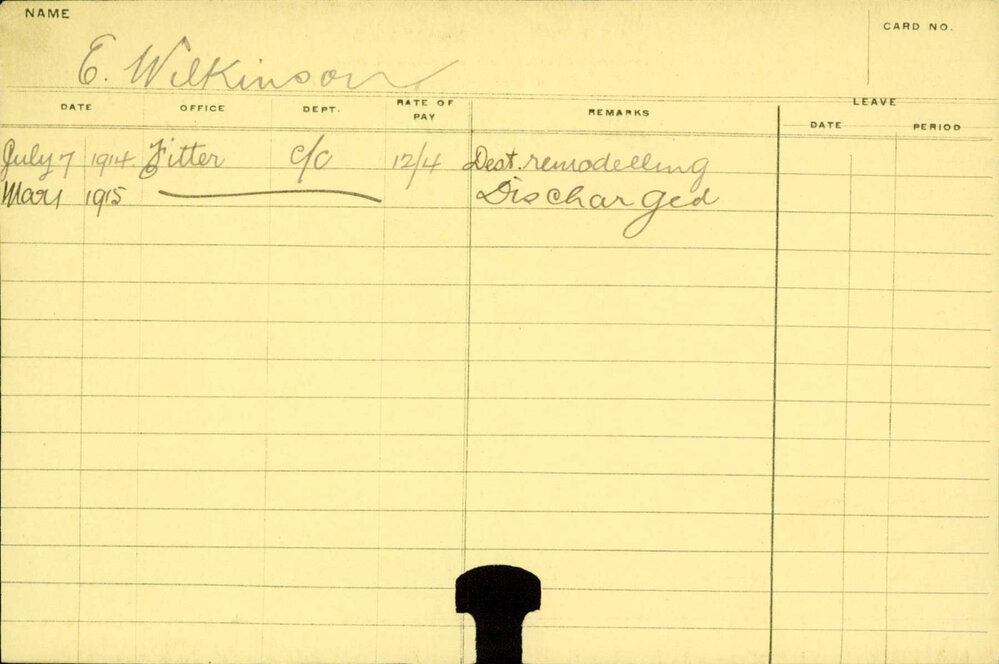 NAME
CARD NO.
E. Wilkinson
DATE OFFICE DEPT. RATE OF PAY REMARKS LEAVE
DATE PERIOD
July 7 1914. Fitter c/o 12/4 Dest. remodelling
Mar 1 1915 Discharged